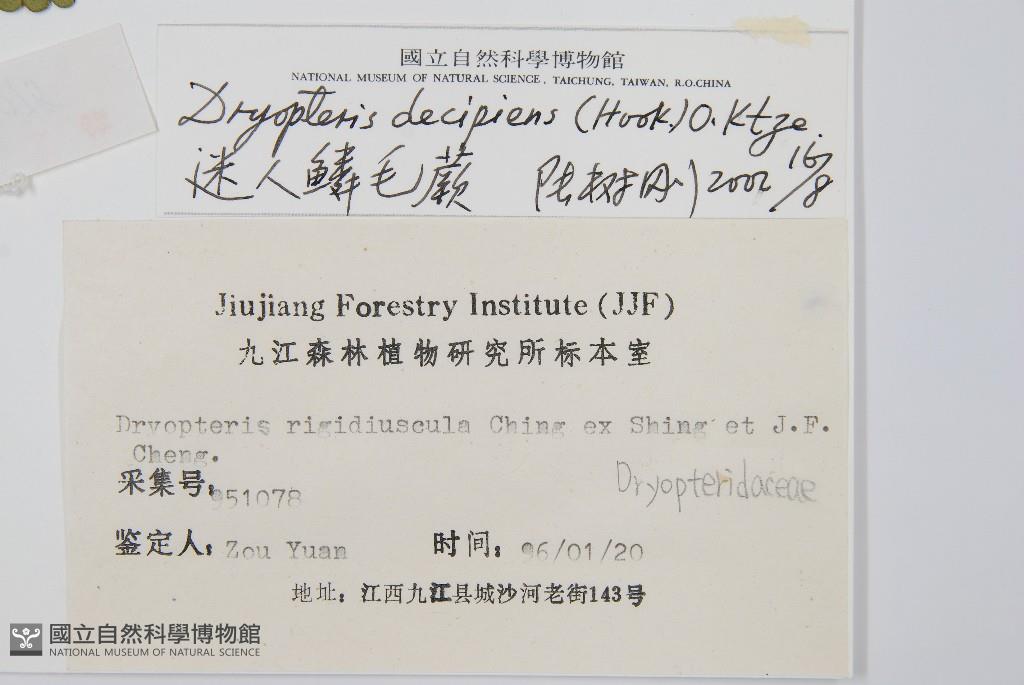 國立自然科學博物館
NATIONAL MUSEUM OF NATURAL SCIENCE, TAICHUNG, TAIWAN, R.O.CHINA
Dryopteris decipiens (Hook.) O. Ktze.
迷人鳞毛蕨 陆树刚 2002 16/8
Jiujiang Forestry Institute (JJF)
九江森林植物研究所标本室
Dryopteris rigidiuscula Ching ex Shing et J.F.
Cheng.
采集号: 951078
Dryopteridaceae
鉴定人: Zou Yuan 时间: 96/01/20
地址: 江西九江县城沙河老街143号
國立自然科學博物館
NATIONAL MUSEUM OF NATURAL SCIENCE